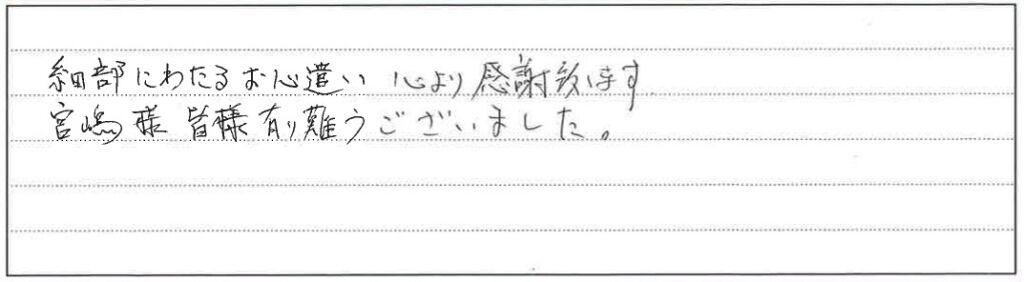 細部にわたるお心遣い 心より感謝致します
宮嶋様 皆様有り難うございました。